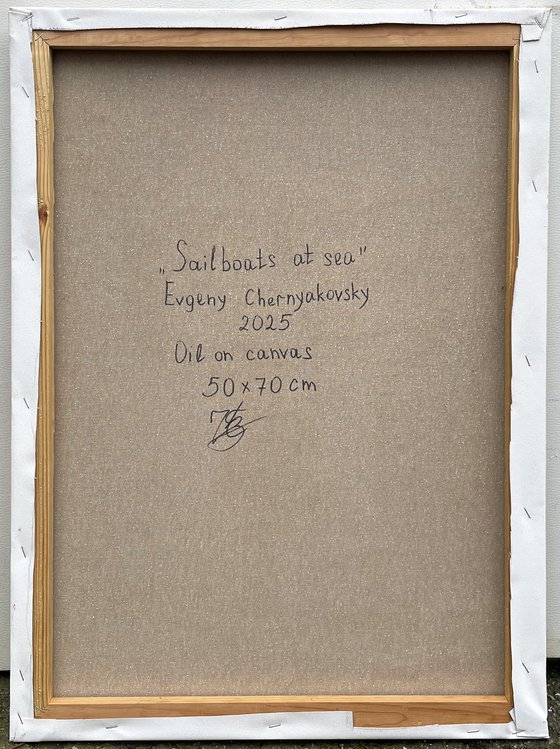 „Sailboats at sea"
Evgeny Chernyakovsky
2025
Oil on canvas
50 x 70 cm